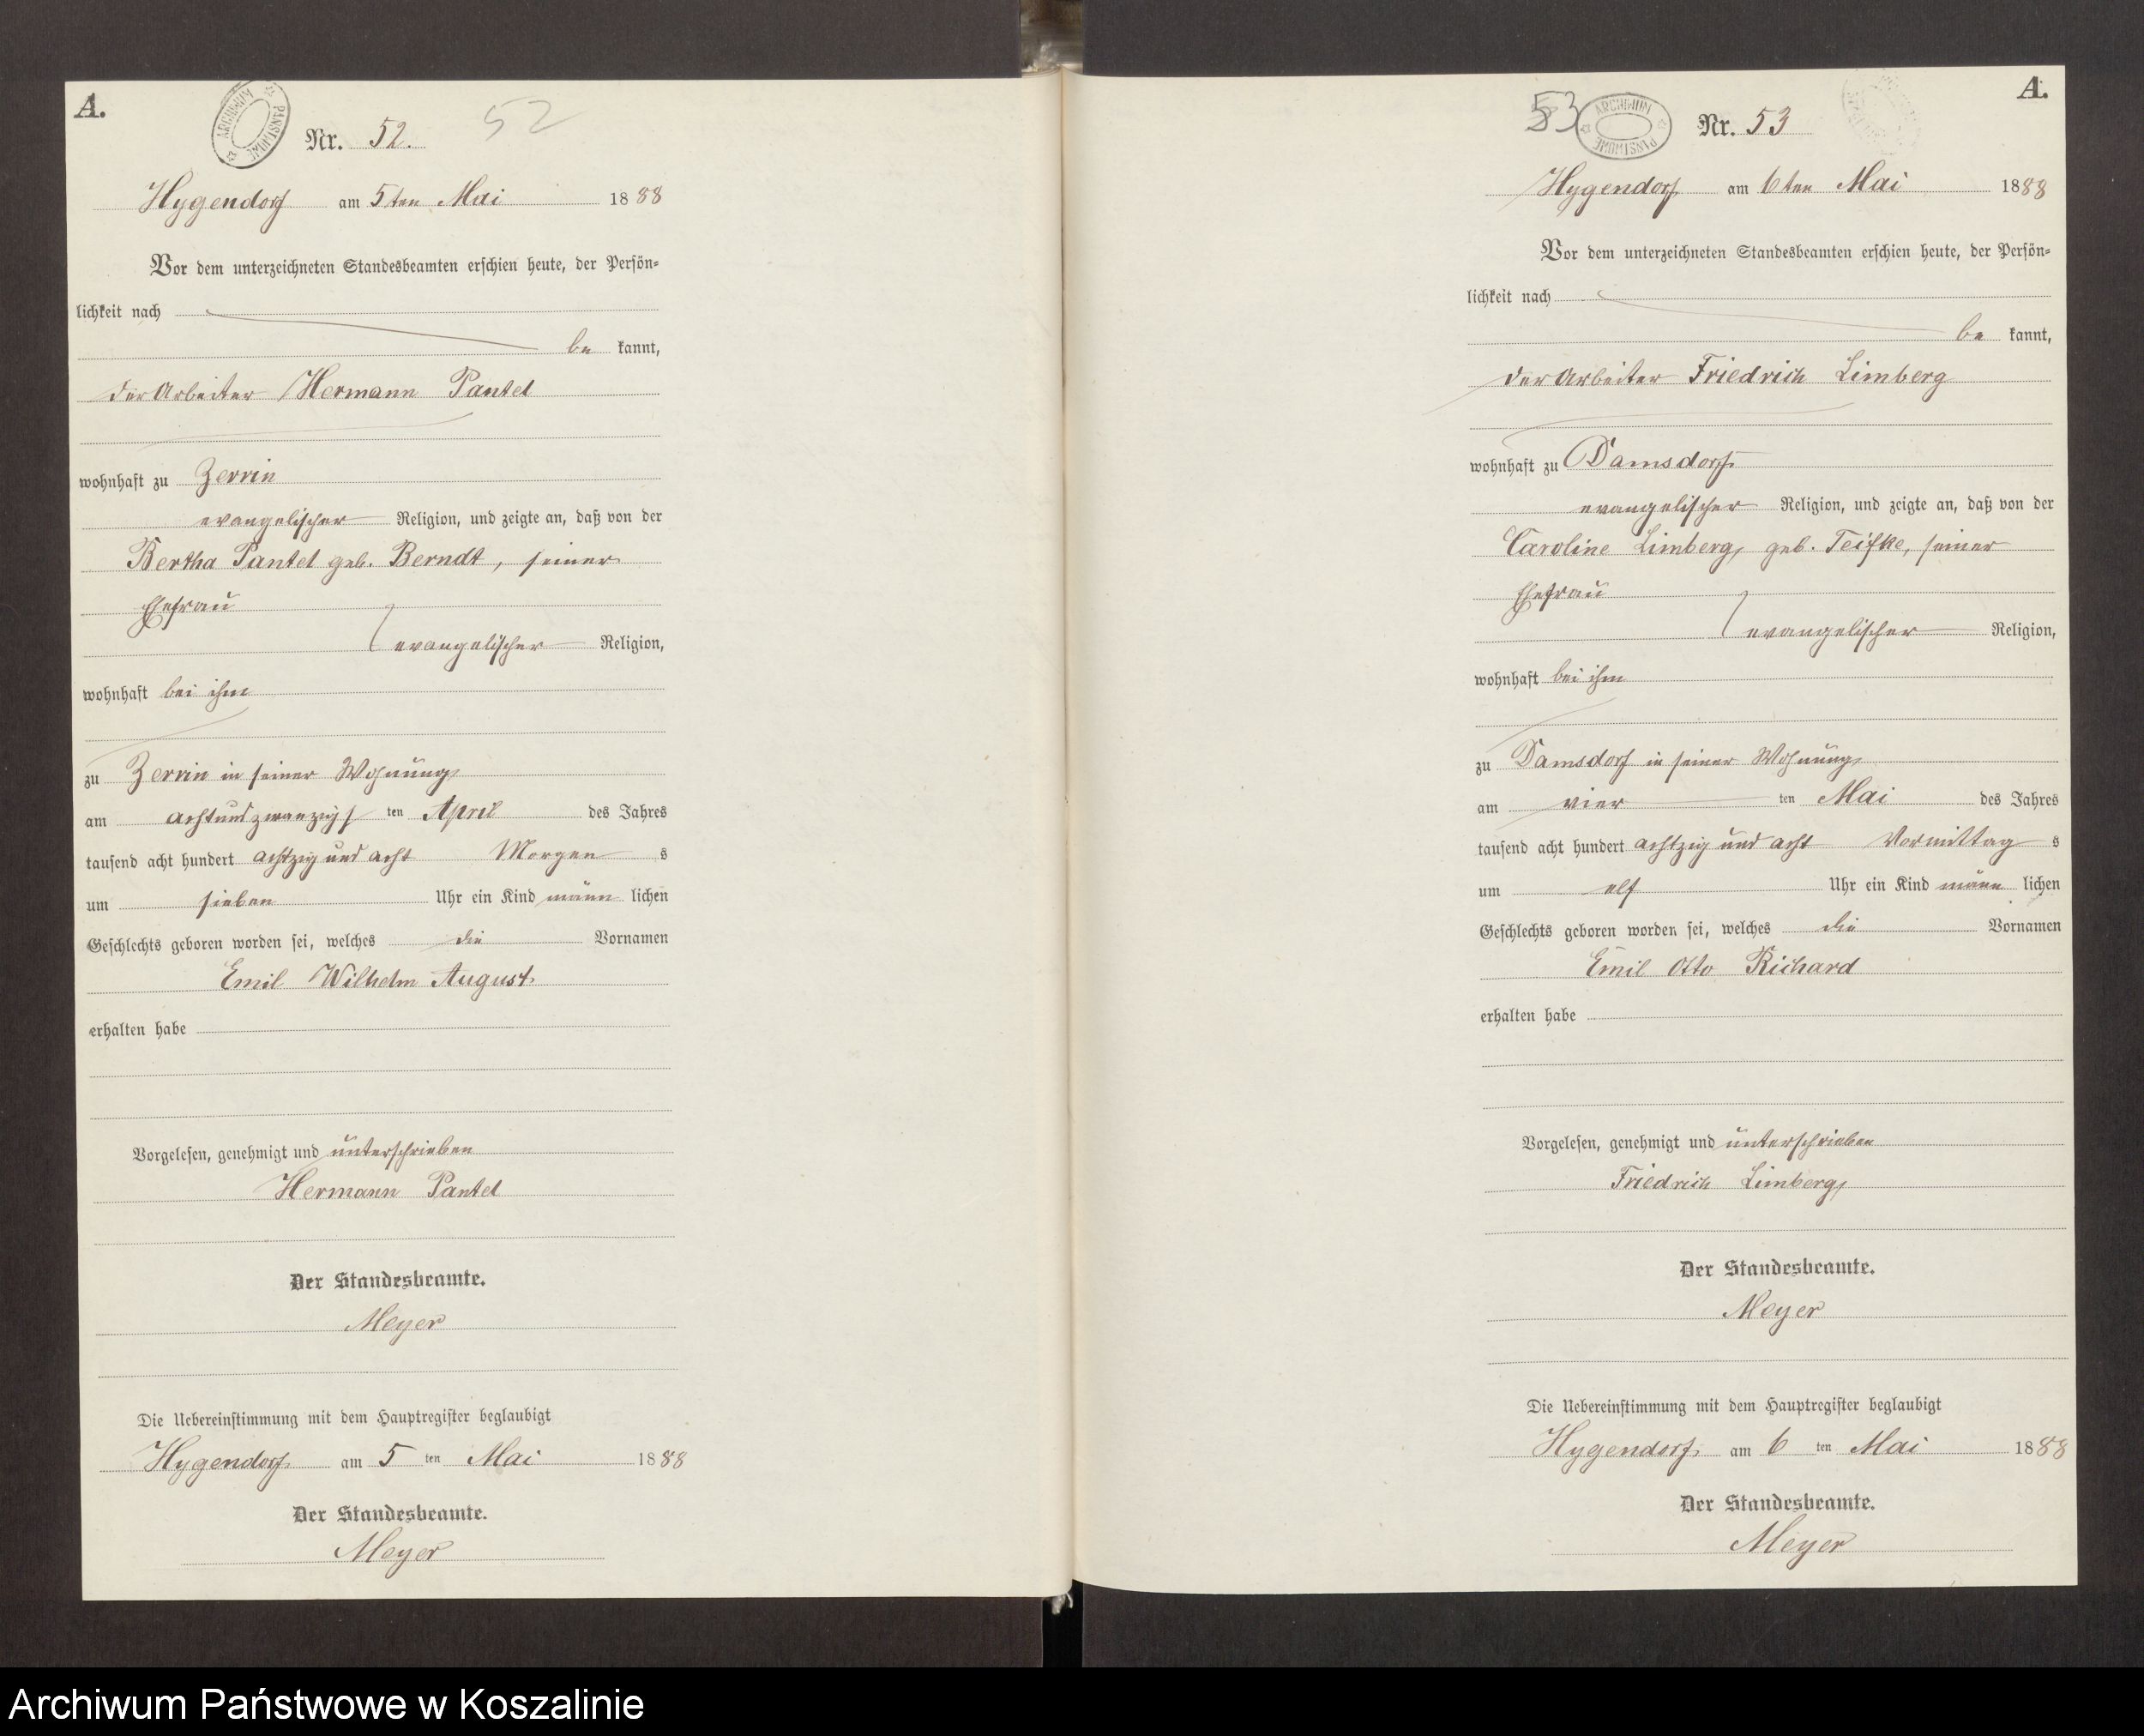 A.
ARCHIWUM PAŃSTWOWE
Nr. 52.
52
Hygendorf am 5ten Mai 1888
Vor dem unterzeichneten Standesbeamten erschien heute, der Persön=
lichkeit nach
be kannt,
der Arbeiter Hermann Pantel
wohnhaft zu Zerrin
evangelischer Religion, und zeigte an, daß von der
Bertha Pantel geb. Berndt, seiner
Ehefrau
evangelischer Religion,
wohnhaft bei ihm
zu Zerrin in seiner Wohnung
am achtundzwanzigsten ten April des Jahres
tausend acht hundert achtzig und acht Morgen s
um sieben Uhr ein Kind männ lichen
Geschlechts geboren worden sei, welches die Vornamen
Emil Wilhelm August
erhalten habe
Vorgelesen, genehmigt und unterschrieben
Hermann Pantel
Der Standesbeamte.
Meyer
Die Uebereinstimmung mit dem Hauptregister beglaubigt
Hygendorf am 5 ten Mai 1888
Der Standesbeamte.
Meyer
A.
53
ARCHIWUM PAŃSTWOWE
Nr. 53
Hygendorf am 6ten Mai 1888
Vor dem unterzeichneten Standesbeamten erschien heute, der Persön=
lichkeit nach
be kannt,
der Arbeiter Friedrich Limberg
wohnhaft zu Damsdorf
evangelischer Religion, und zeigte an, daß von der
Caroline Limberg, geb. Teifke, seiner
Ehefrau
evangelischer Religion,
wohnhaft bei ihm
zu Damsdorf in seiner Wohnung
am vier ten Mai des Jahres
tausend acht hundert achtzig und acht Vormittag s
um elf Uhr ein Kind männ lichen
Geschlechts geboren worden sei, welches die Vornamen
Emil Otto Richard
erhalten habe
Vorgelesen, genehmigt und unterschrieben
Friedrich Limberg
Der Standesbeamte.
Meyer
Die Uebereinstimmung mit dem Hauptregister beglaubigt
Hygendorf am 6 ten Mai 1888
Der Standesbeamte.
Meyer
Archiwum Państwowe w Koszalinie